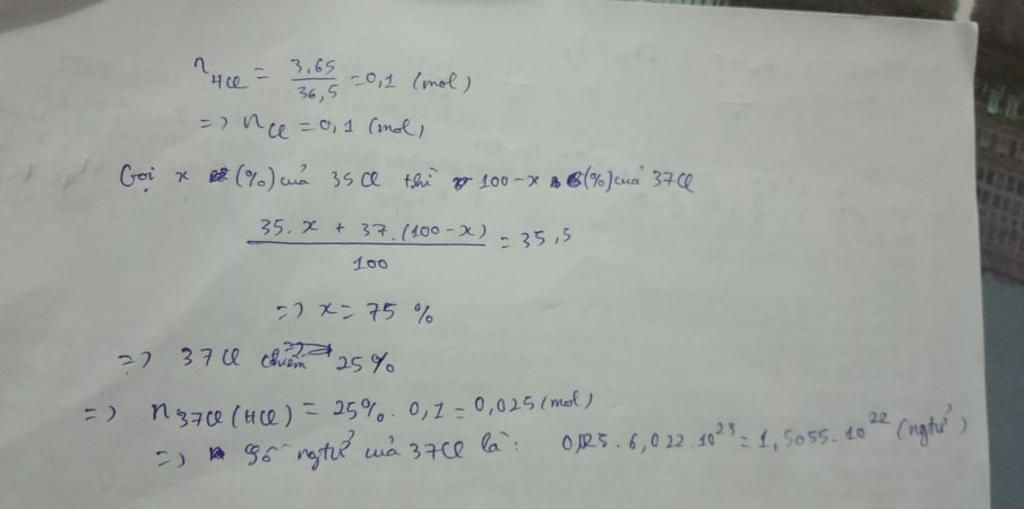 n HCl = 3,65 / 36,5 = 0,1 (mol)
=> n Cl = 0,1 (mol)
Gọi x (%) của 35Cl thì 100-x (%) của 37Cl
35.x + 37.(100-x) / 100 = 35,5
=> x = 75 %
=> 37Cl chiếm 25%
=> n 37Cl (HCl) = 25%. 0,1 = 0,025 (mol)
=> Số ngtử của 37Cl là: 6,022.10^23 = 1,5055.10^22 (ngtử)